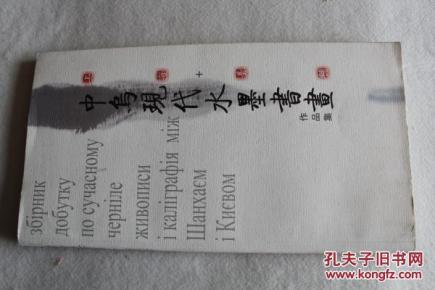 中烏現代水墨書畫
作品集
збірник
добутку
по сучасному
черніле
живописи
і каліграфія між
Шанхаєм
і Києвом
孔夫子旧书网
www.kongfz.com